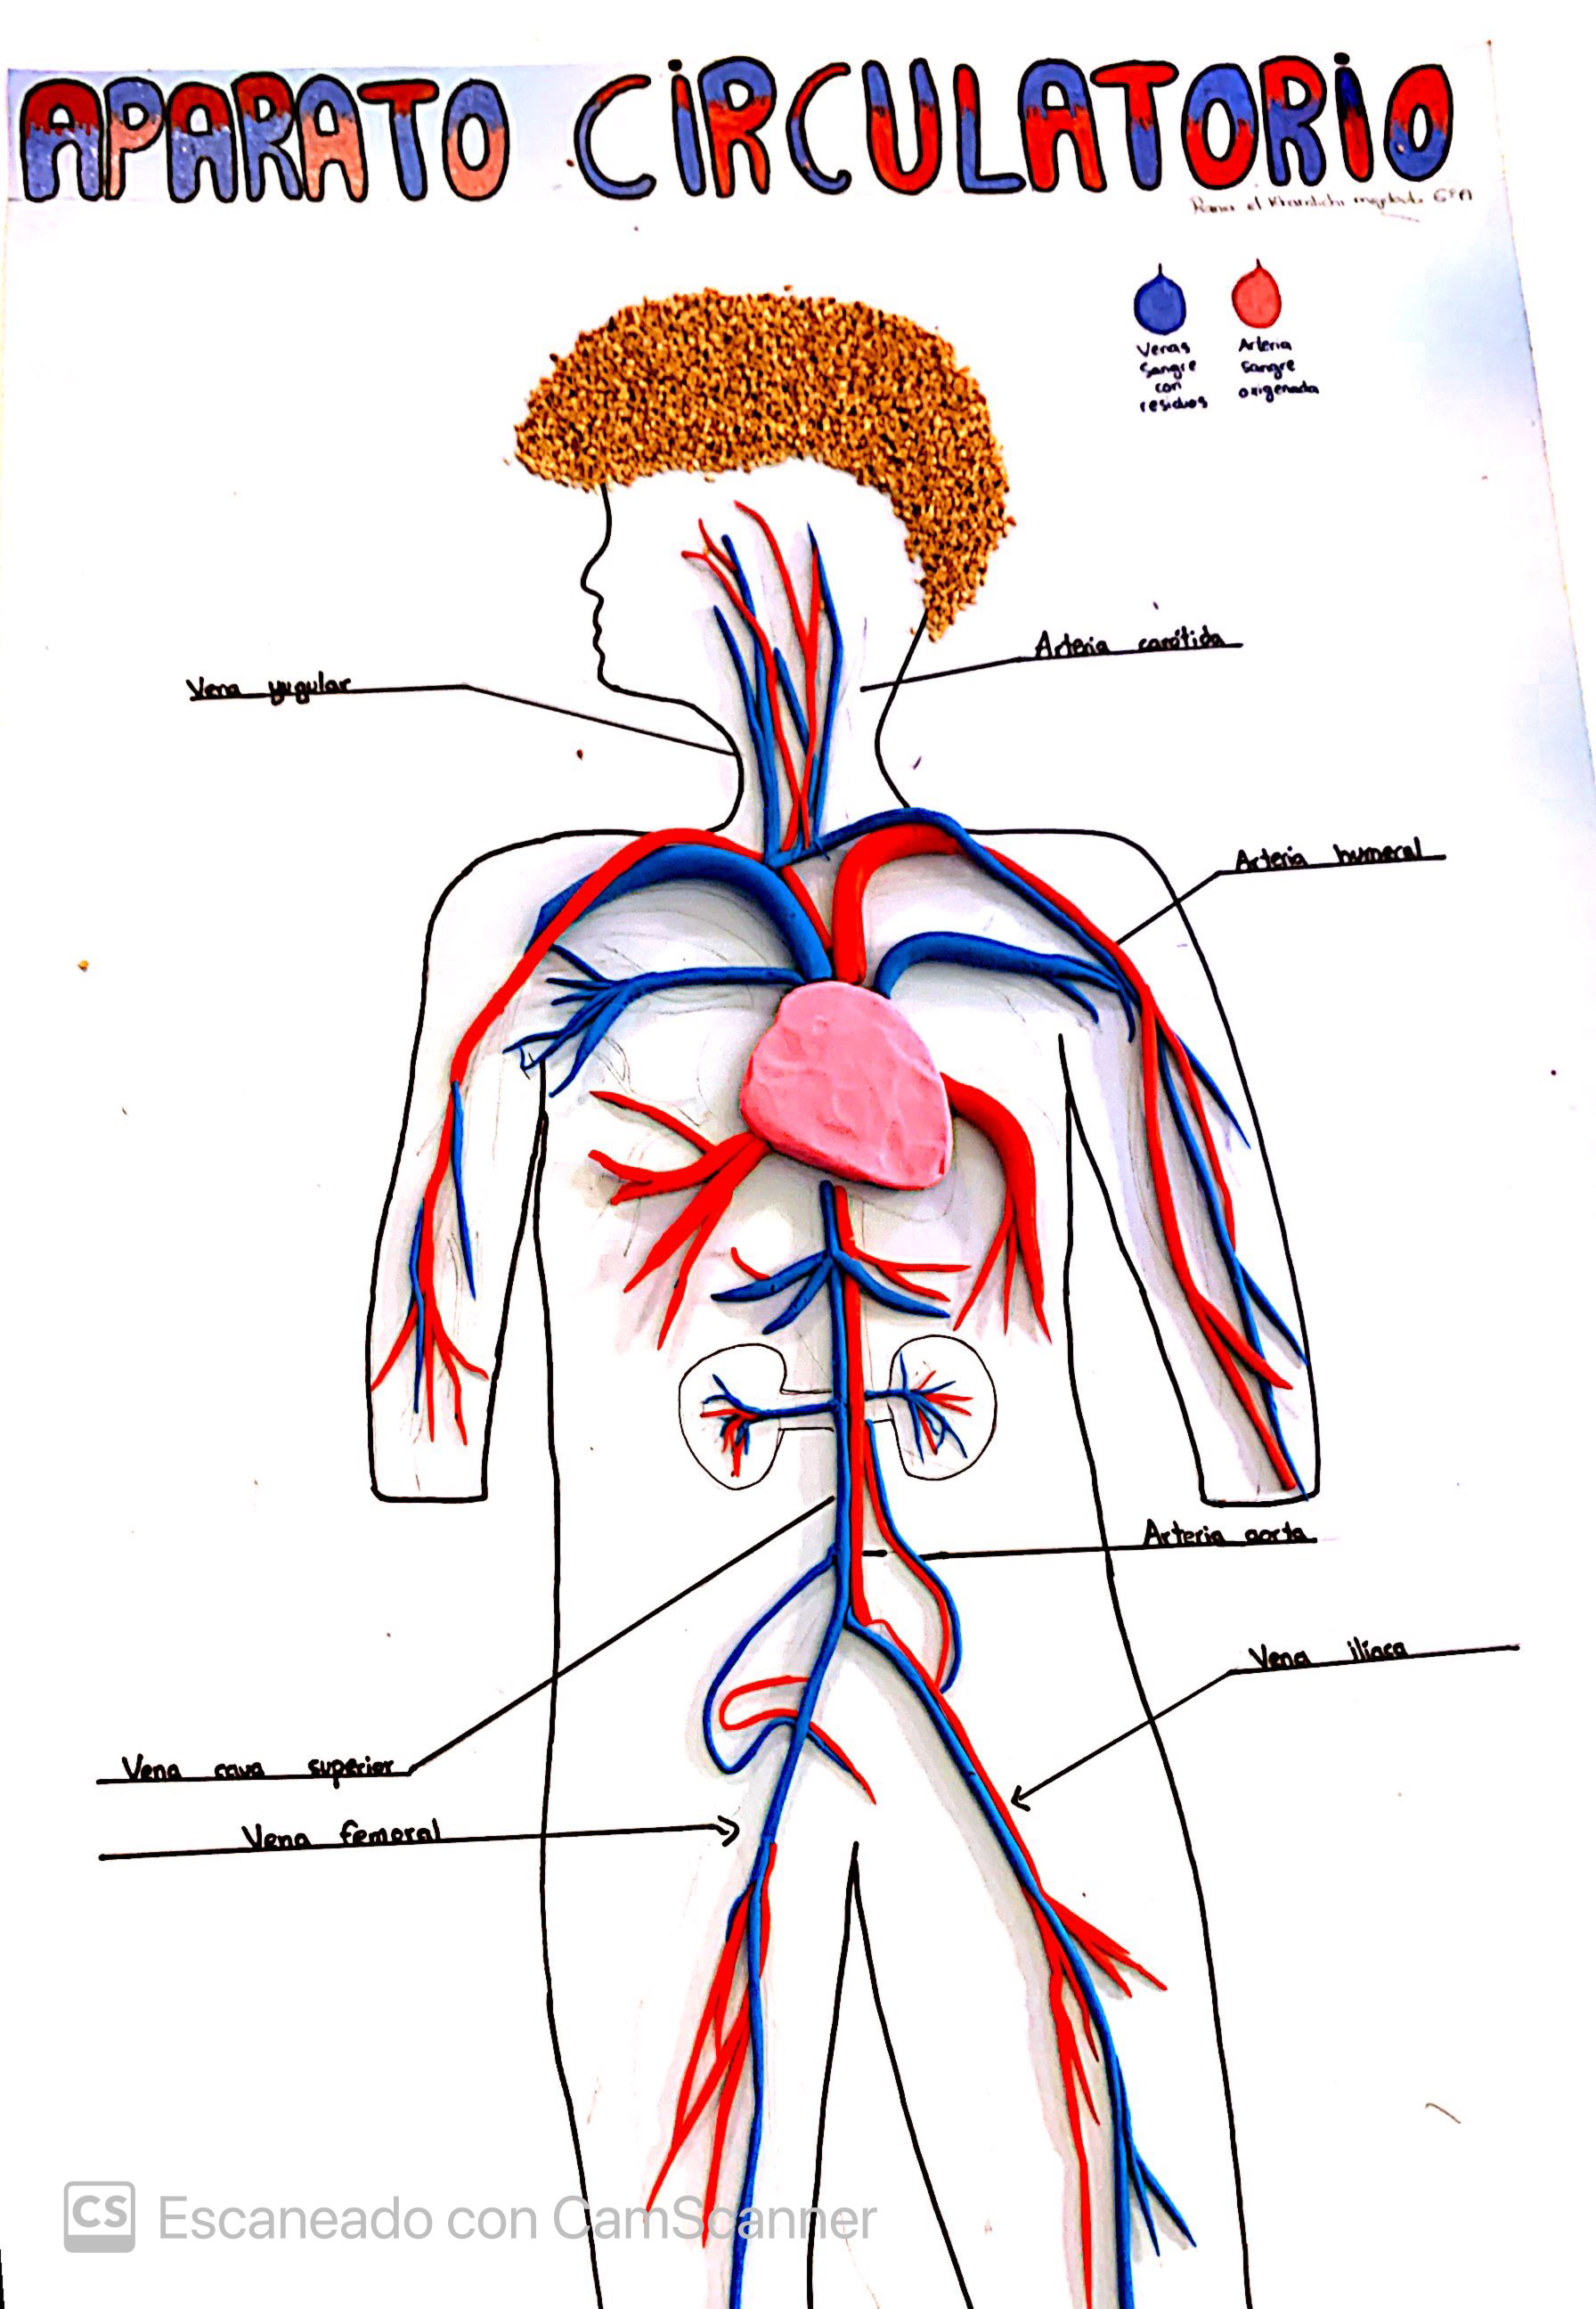 APARATO CIRCULATORIO
6ºA
Venas
Sangre
con
residuos
Arteria
Sangre
oxigenada
Arteria carótida
Vena yugular
Arteria humeral
Arteria aorta
Vena ilíaca
Vena cava superior
Vena femoral
CS Escaneado con CamScanner